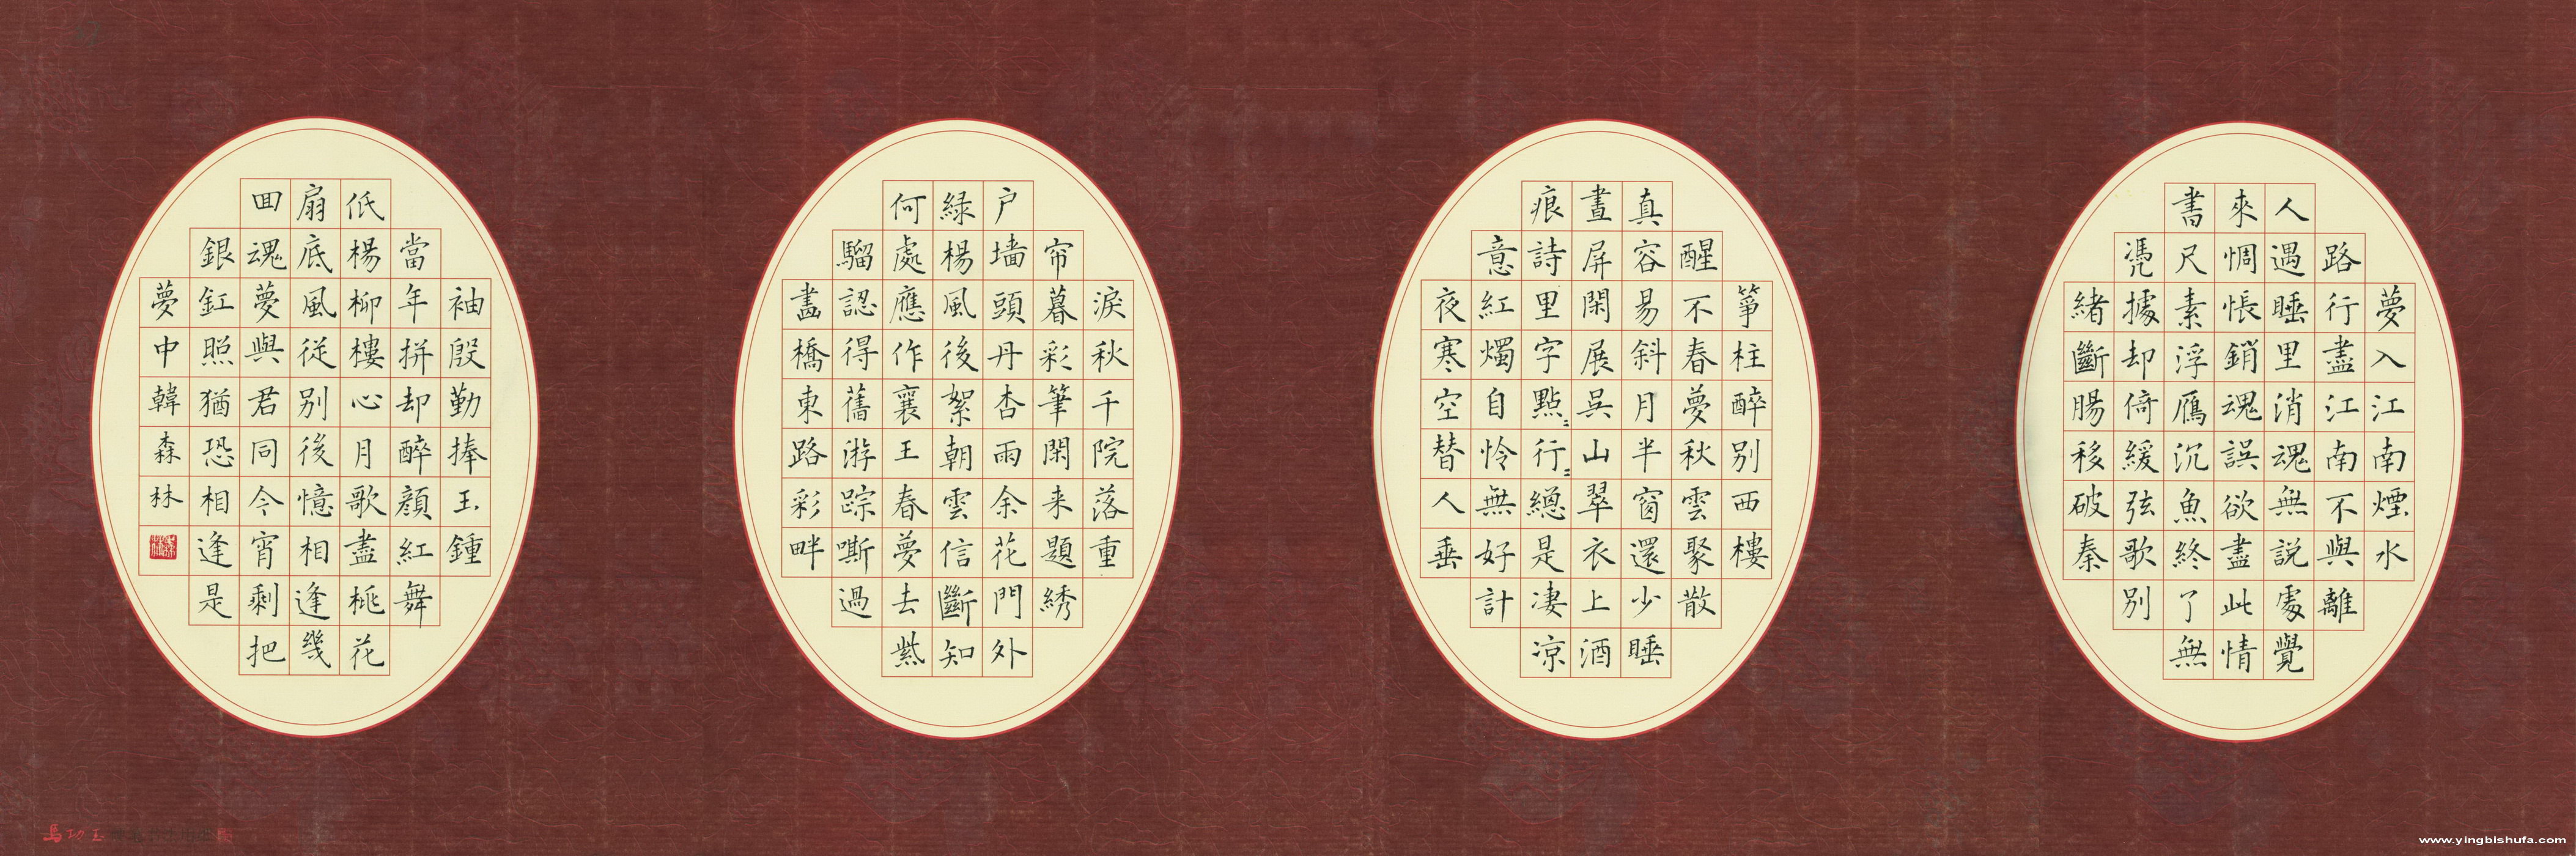 夢入江南煙水
路行盡江南不與離
人遇睡里消魂無説處覺
來惆悵銷魂誤欲盡此情
書尺素浮鴈沉魚終了無
憑據却倚緩弦歌别
緒斷腸移破秦
筝柱醉别西樓
醒不春夢秋雲聚散
真容易斜月半窗還少睡
畫屏閑展吳山翠衣上酒
痕詩里字點〻行〻總是凄凉
意紅燭自怜無好計
夜寒空替人垂
淚秋千院落重
帘暮彩筆閑来題綉
户墙頭丹杏雨余花門外
緑楊風後絮朝雲信斷知
何處應作襄王春夢去紫
騮認得舊游踪嘶過
畫橋東路彩畔
袖殷勤捧玉鍾
當年拼却醉顔紅舞
低楊柳樓心月歌盡桃花
扇底風從别後憶相逢幾
回魂夢與君同今宵剩把
銀釭照猶恐相逢是
夢中韓森林
www.yingbishufa.com